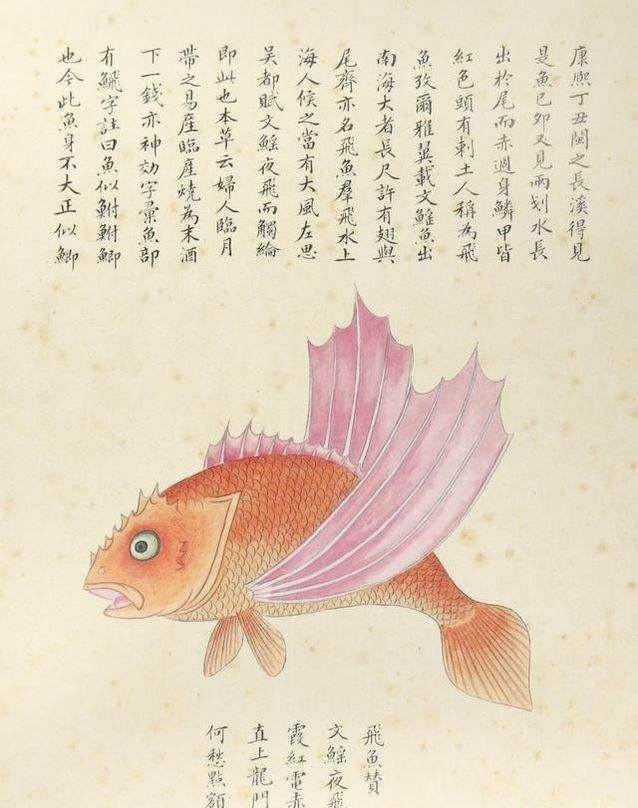 康熙丁丑閩之長溪得見
是魚己卯又見兩划水長
出於尾而赤週身鱗甲皆
紅色頭有刺土人稱為飛
魚攷爾雅翼載文鰩魚出
南海大者長尺許有翅與
尾齊亦名飛魚羣飛水上
海人候之當有大風左思
吳都賦文鰩夜飛而觸綸
即此也本草云婦人臨月
帶之易產臨產燒為末酒
下一錢亦神効字彙魚部
有字註曰魚似鮒鮒鯽
也今此魚身不大正似鯽
飛魚贊
文鰩夜飛
霞紅電赤
直上龍門
何愁點額